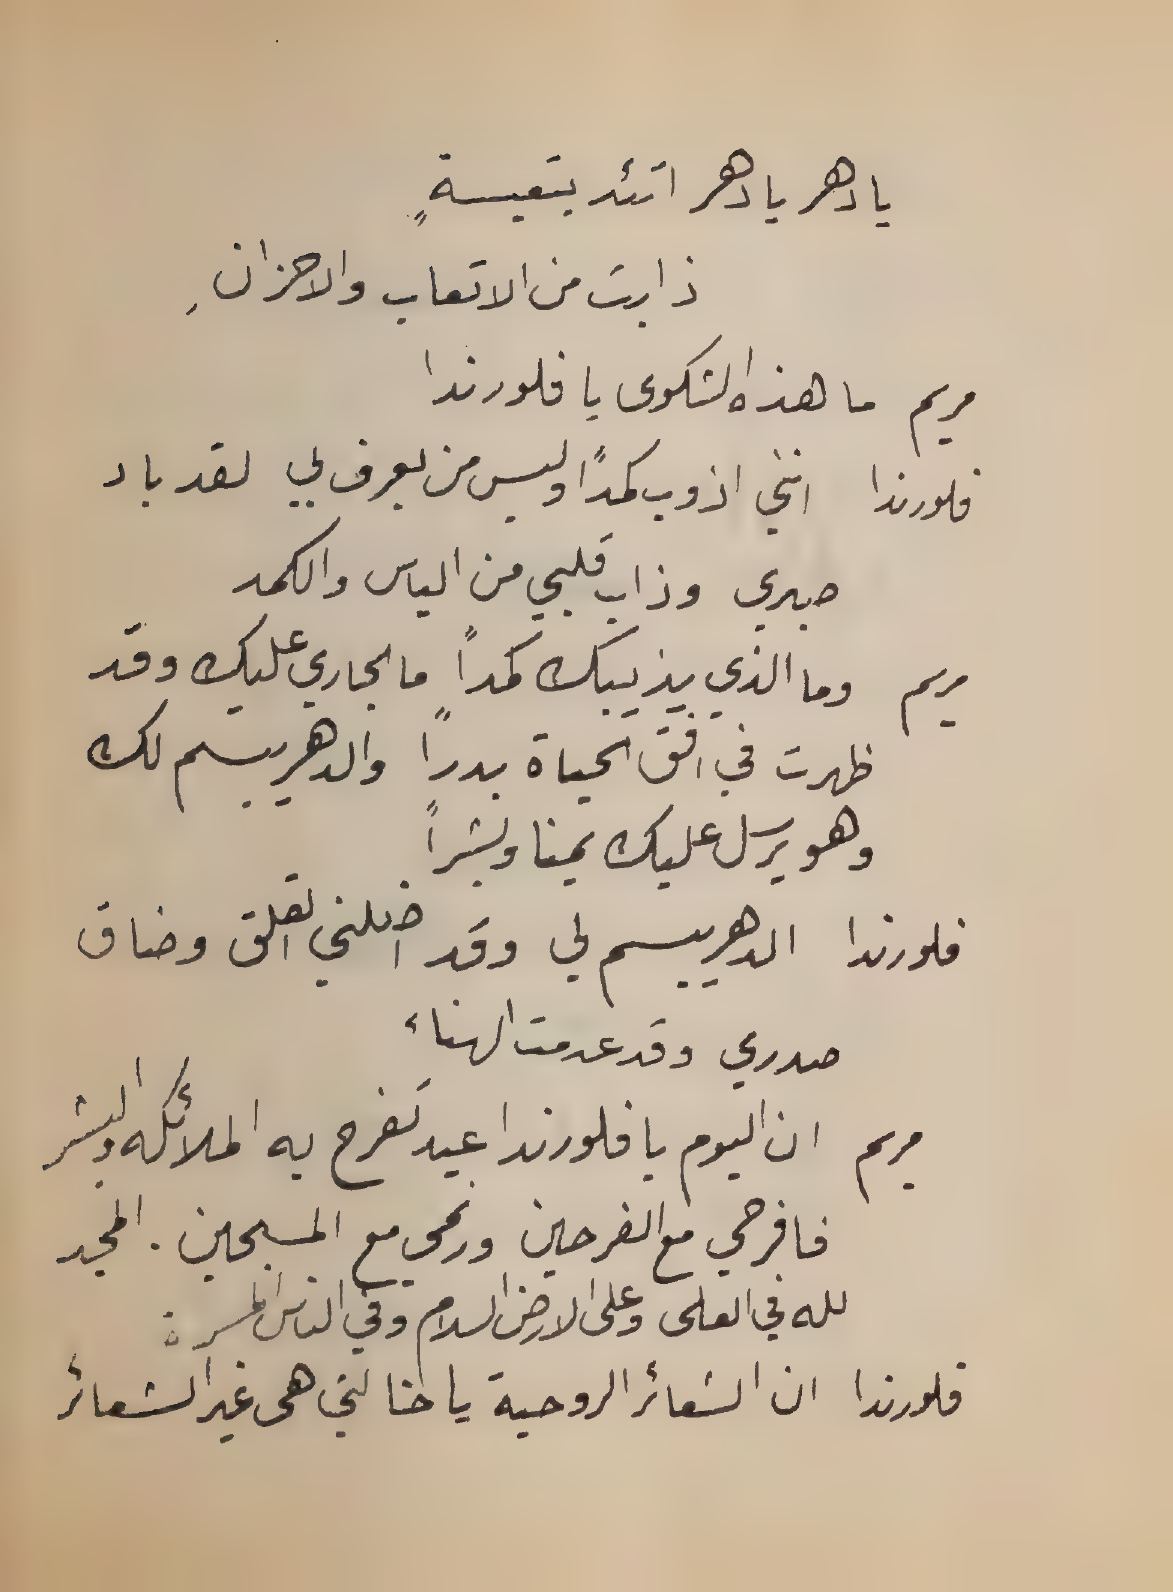 يا دهر يا دهر اتئد بتعيسةٍ
ذابت من الاتعاب والاحزانِ
مريم ما هذه الشكوى يا فلورندا
فلورندا انني اذوب كمداً وليس من يعرف لي لقد باد
صبري وذاب قلبي من الياس والكمد
مريم وما الذي يذيبك كمداً ما الجاري عليك وقد
ظهرت في افق الحياة بدراً والدهر يبسم لك
وهو يرسل عليك يمنا وبشراً
فلورندا الدهر يبسم لي وقد القلق وضاق
صدري وقد عدمت الهناء
مريم ان اليوم يا فلورندا عيد تفرح به الملائكه والبشر
فافرحي مع الفرحين ورنمي مع المسبحين . المجد
لله في العلى وعلى الارض السلام وفي الناس المسرة
فلورندا ان الشعائر الروحية يا خالتي هى غير الشعائر